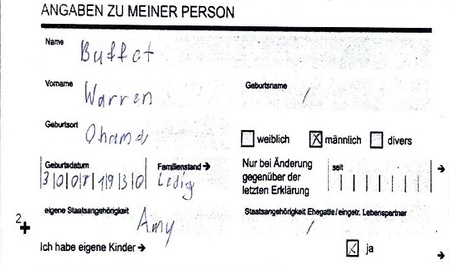 ANGABEN ZU MEINER PERSON
Name
Buffet
Vorname
Warren
Geburtsname
/
Geburtsort
Ohama
weiblich
männlich
divers
Geburtsdatum
30081930
Familienstand →
Ledig
Nur bei Änderung
gegenüber der
letzten Erklärung
seit
→
eigene Staatsangehörigkeit
Amy
Staatsangehörigkeit Ehegatte / eingetr. Lebenspartner
/
2
Ich habe eigene Kinder →
ja
→